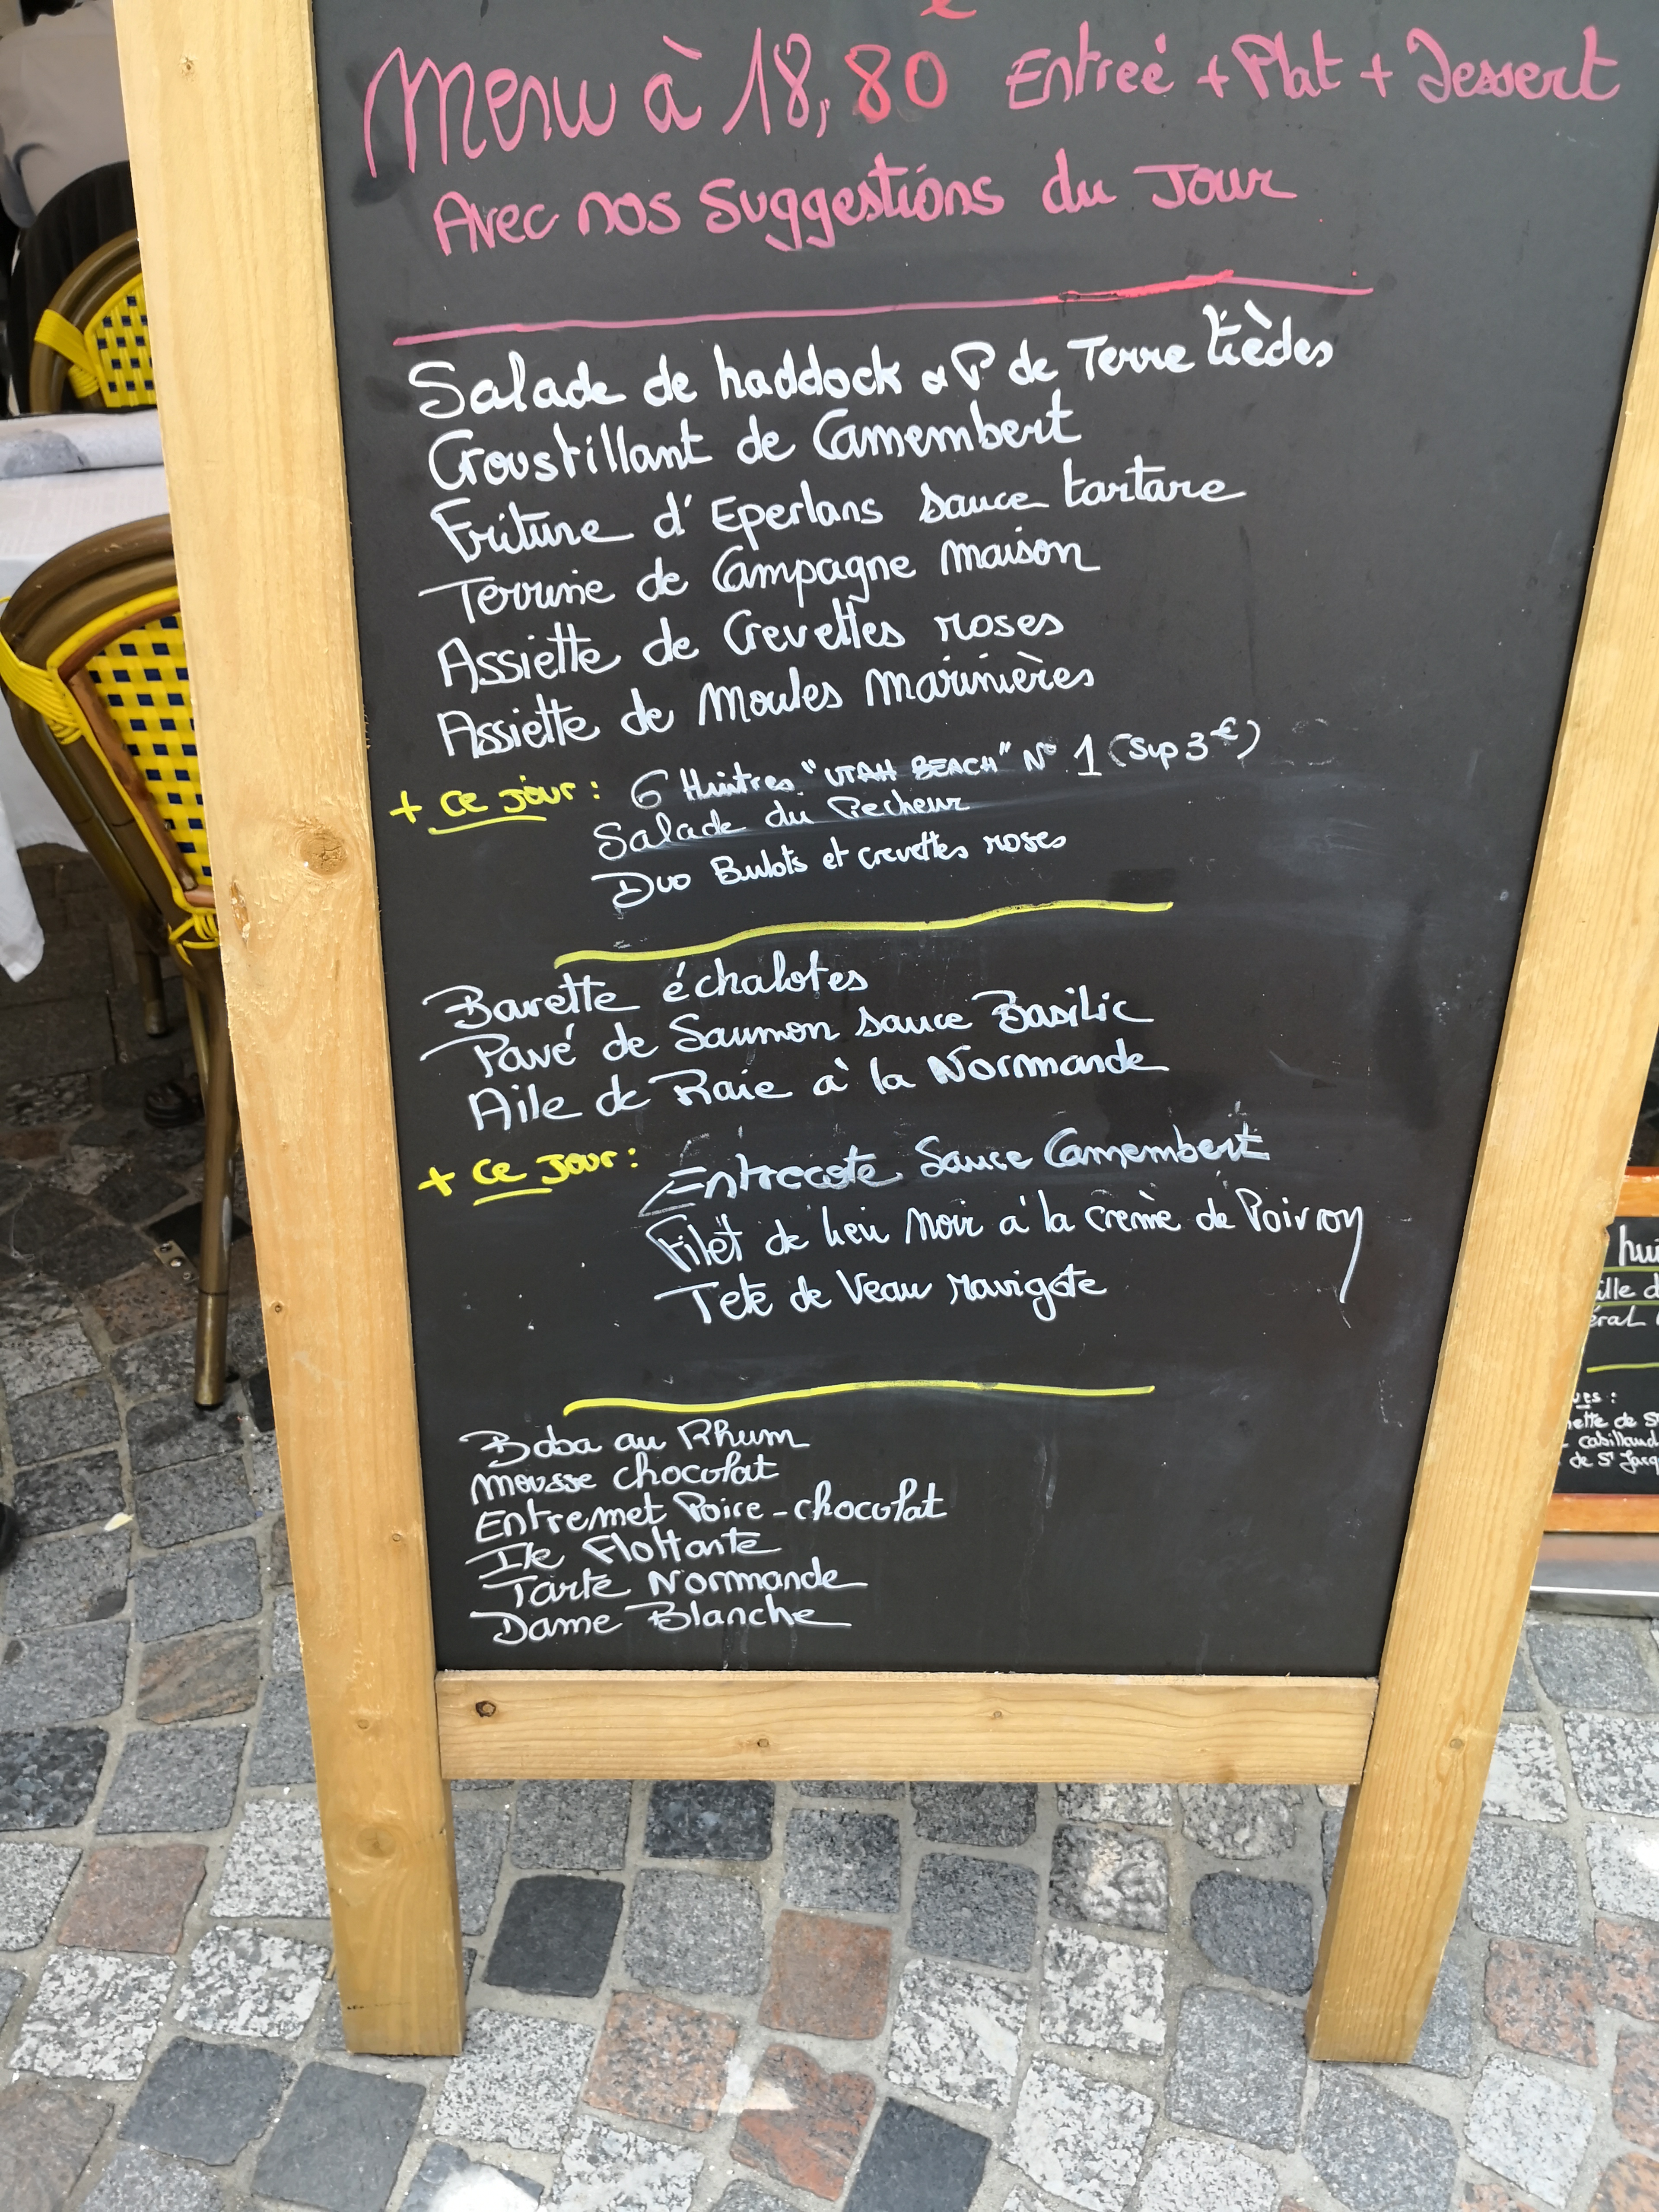 Menu à 18,80€ Entreé + Plat + Dessert
Avec nos Suggestions du Jour
Salade de haddock & P de Terre tièdes
Croustillant de Camembert
Friture d'Eperlans sauce tartare
Terrine de Campagne maison
Assiette de Crevettes roses
Assiette de Moules marinières
+ ce jour : 6 Huitres "UTAH BEACH" N° 1 (Sup 3€)
Salade du Pecheur
Duo Bulots et crevettes roses
Bavette échalotes
Pavé de Saumon sauce Basilic
Aile de Raie à la Normande
+ ce jour : Entrecote Sauce Camembert
Filet de lieu noir à la crème de Poivron
Tete de Veau ravigote
Baba au Rhum
Mousse chocolat
Entremet Poire-chocolat
Ile Flottante
Tarte Normande
Dame Blanche
hui
ille d
éral
ues :
ette de St
cabillaud
de St Jacq